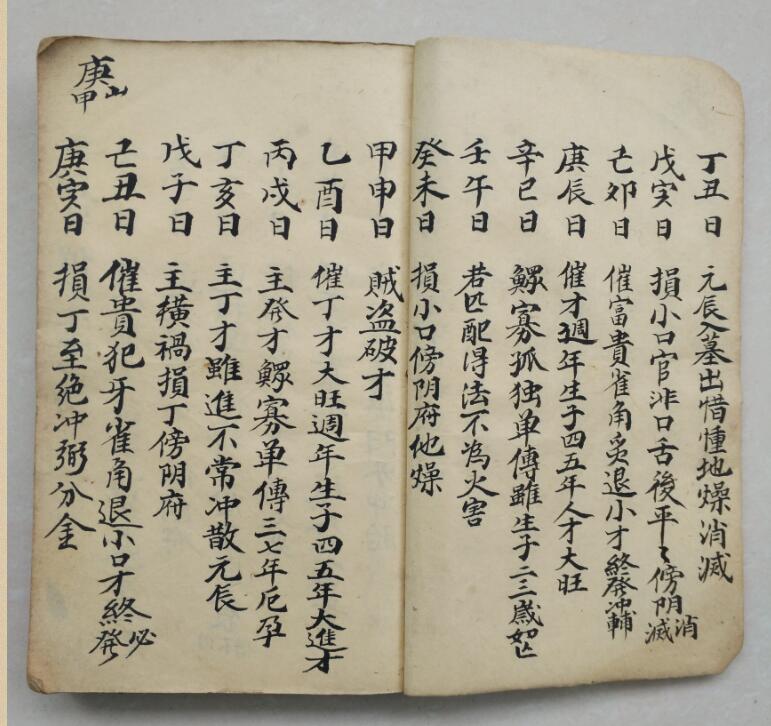 丁丑日 元辰入墓出惜懂地燥消滅
戊寅日 損小口官非口舌後平〻傍阴消滅
己夘日 催富貴雀角爻退小才終發冲輔
庚辰日 催才週年生子四五年人才大旺
辛巳日 鰥寡孤独单傳雖生子二三歲如亡
壬午日 若匹配得法不為火害
癸未日 損小口傍阴府他燥
甲申日 賊盗破才
乙酉日 催丁才大旺週年生子四五年大進才
丙戌日 主發才鰥寡单傳三七年厄孕
丁亥日 主丁才雖進不常冲散元辰
戊子日 主横禍損丁傍阴府
己丑日 催貴犯牙雀角退小口才終必發
庚寅日 損丁至绝冲弼分金
庚山甲